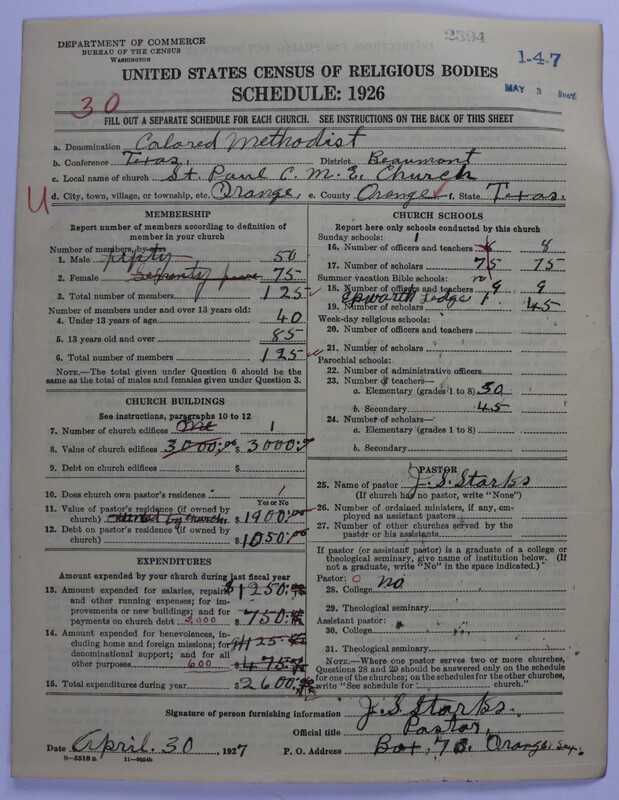 2394
DEPARTMENT OF COMMERCE
BUREAU OF THE CENSUS
WASHINGTON
1-4-7
MAY 3
UNITED STATES CENSUS OF RELIGIOUS BODIES
SCHEDULE: 1926
30
FILL OUT A SEPARATE SCHEDULE FOR EACH CHURCH. SEE INSTRUCTIONS ON THE BACK OF THIS SHEET
a. Denomination Colored Methodist
b. Conference Texas. District Beaumont
c. Local name of church St. Paul C. M. E. Church
U d. City, town, village, or township, etc. Orange, e. County Orange f. State Texas.
MEMBERSHIP
Report number of members according to definition of member in your church
Number of members, by sex
1. Male fifty 50
2. Female Seventy five 75
3. Total number of members 125
Number of members under and over 13 years old:
4. Under 13 years of age 40
5. 13 years old and over 85
6. Total number of members 125
NOTE.—The total given under Question 6 should be the same as the total of males and females given under Question 3.
CHURCH BUILDINGS
See instructions, paragraphs 10 to 12
7. Number of church edifices One 1
8. Value of church edifices 3000.00 $ 3000
9. Debt on church edifices $
10. Does church own pastor's residence 1
Yes or No
11. Value of pastor's residence (if owned by church) $ 1900.00
12. Debt on pastor's residence (if owned by church) $ 1050.00
EXPENDITURES
Amount expended by your church during last fiscal year
13. Amount expended for salaries, repairs and other running expenses; for improvements or new buildings; and for payments on church debt 2,000 $1250. $ 750.
14. Amount expended for benevolences, including home and foreign missions; for denominational support; and for all other purposes 600 $125. $ 475.
15. Total expenditures during year $ 2600.
CHURCH SCHOOLS
Report here only schools conducted by this church
Sunday schools: 1
16. Number of officers and teachers 8 8
17. Number of scholars 75 75
Summer vacation Bible schools: no
18. Number of officers and teachers 9 9
Epworth Ledge 1
19. Number of scholars 45
Week-day religious schools:
20. Number of officers and teachers
21. Number of scholars
Parochial schools:
22. Number of administrative officers
23. Number of teachers—
a. Elementary (grades 1 to 8) 30
b. Secondary 45
24. Number of scholars—
a. Elementary (grades 1 to 8)
b. Secondary
PASTOR
25. Name of pastor J. S. Starks
(If church has no pastor, write "None")
26. Number of ordained ministers, if any, employed as assistant pastors
27. Number of other churches served by the pastor or his assistants
If pastor (or assistant pastor) is a graduate of a college or theological seminary, give name of institution below. (If not a graduate, write "No" in the space indicated.)
Pastor: 0
28. College no
29. Theological seminary
Assistant pastor:
30. College
31. Theological seminary
NOTE.—Where one pastor serves two or more churches, Questions 28 and 29 should be answered only on the schedule for one of the churches; on the schedules for the other churches, write "See schedule for church."
Signature of person furnishing information J. S. Starks.
Official title Pastor.
Date April. 30, 1927 P. O. Address Box. 73. Orange, Tex.
8-5518 a